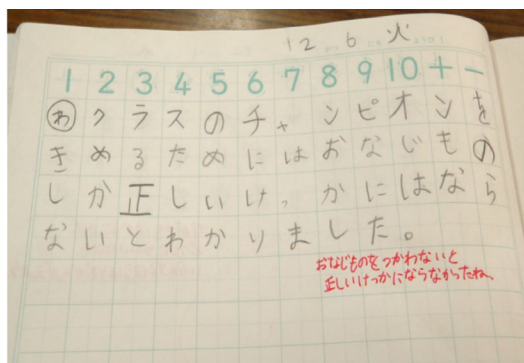 12 6 火
1 2 3 4 5 6 7 8 9 10 + -
わ クラスのチャンピオンを
きめるためにはおなじもの
しか正しいけっかにはなら
ないとわかりました。
おなじものをつかわないと
正しいけっかにならなかったね。